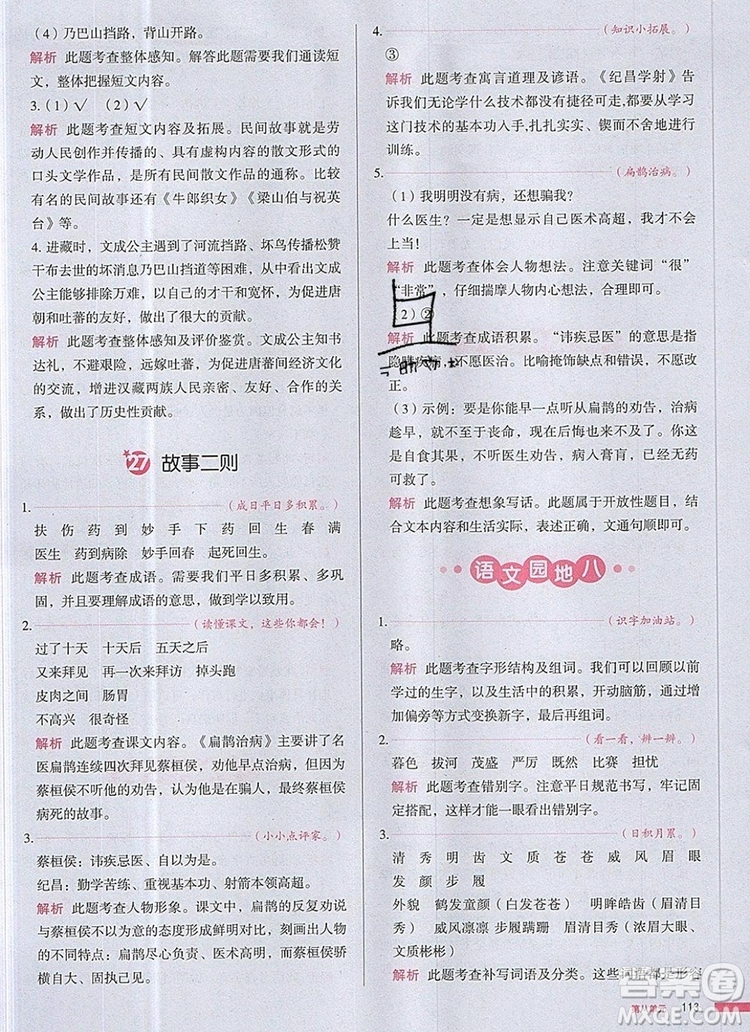 （4）乃巴山挡路，背山开路。
解析 此题考查整体感知。解答此题需我们通读短
文，在整体把握短文内容。
3.（1）√ （2）√
解析 此题考查短文内容及拓展。民间故事就是劳
动人民创作并传播的、具有虚构内容的散文形式的
口头文学作品，是所有民间散文作品的通称。还有
其他的民间故事还有《牛郎织女》《梁山伯与祝英
台》等。
4. 进藏时，文成公主遇到了河流挡路、坏鸟传播松赞
干布去世的坏消息乃巴山挡道等困难，但文成公主
却能够排除万难，以自己的才干和宽怀，为促进唐
朝和吐蕃的友好，做出了很大的贡献。
解析 此题考查整体感知及评价鉴赏。文成公主知书
达礼，不避艰险，远嫁吐蕃，为促进唐蕃间经济文化
的交流，增进汉藏两族人民亲密、友好、合作的关
系，做出了历史性贡献。
27 故事二则
1.（成日平日多积累。）
扶 伤 药 到 妙 手 下 药 回 生 春 满
医生 药到病除 妙手回春 起死回生。
解析 此题考查成语。需我们平日多积累、多巩
固，并能够理解成语的意思，学以致用。
2.（读懂课文，这些你都会！）
过了十天 十天后 五天之后
又来拜见 再一次来拜访 掉头跑
皮肉之间 肠胃
不高兴 很奇怪
解析 此题考查课文内容。《扁鹊治病》主要讲了名
医扁鹊连续四次拜见蔡桓侯，劝他早点治病，但是蔡
桓侯不听他的劝告，致使自己延误病情，最终蔡桓侯
病死的故事。
3.（小小点评家。）
蔡桓侯：讳疾忌医、自以为是。
纪昌：勤学苦练、重视基本功、射箭本领高强。
解析 此题考查人物形象。课文中，扁鹊的反复劝说
与蔡桓侯的态度形成鲜明对比，很好地突出了人物
的不同特点：扁鹊尽心负责、医术高明，蔡桓侯骄
傲自大、固执己见。
4.（知识小拓展。）
③
解析 此题考查寓言道理及谚语。《纪昌学射》告
诉我们无论学什么技术都没有捷径可走，都要从学习
这门技术的基本功入手，扎扎实实、锲而不舍地进行
训练。
5.（扁鹊治病。）
（1）我明明没有病，还想骗我？
什么医生？一定是想显示自己医术高超，我才不会
上当！
解析 此题考查体会人物想法。注意关键词“很”
“非常”，仔细揣摩人物内心想法，合理即可。
2）②
解析 此题考查成语积累。“讳疾忌医”的意思是指
隐瞒疾病，不愿医治。比喻掩饰缺点和错误，不愿改
正。
（3）示例：要是你能早一点听从扁鹊的劝告，治病
趁早，就不至于丧命，现在后悔也没有用了，这都
是自食其果，不听劝告，病入膏肓，已经无药可
可救了！
解析 此题考查想象写话。此题属于开放性题目，结
合文本内容和生活实际，表达正确、文通句顺即可。
语文园地八
1.（识字加油站。）
略。
解析 此题考查字形结构及组词。我们可以根据课文
中学过的生字，以及生活中的积累，开动脑筋，通过
加偏旁等方式变换新字，再组词。
2.（看一看，辨一辨。）
暮色 拔河 茂盛 严厉 既然 比赛 担忧
解析 此题考查错别字。需平日规范书写，牢记固
定搭配，才能够正确地查出错别字。
3.（日积月累。）
清 秀 明 齿 文 质 苍 苍 威 风 眉 眼
发 童 步 履
外貌 鹤发童颜（白发苍苍） 明眸皓齿（眉清目
秀） 威风凛凛 步履蹒跚 （浓眉大眼、
文质彬彬）
解析 此题考查补写词语及分类。这些词语都是形容
第八单元 113
答案圈
MXQE.COM